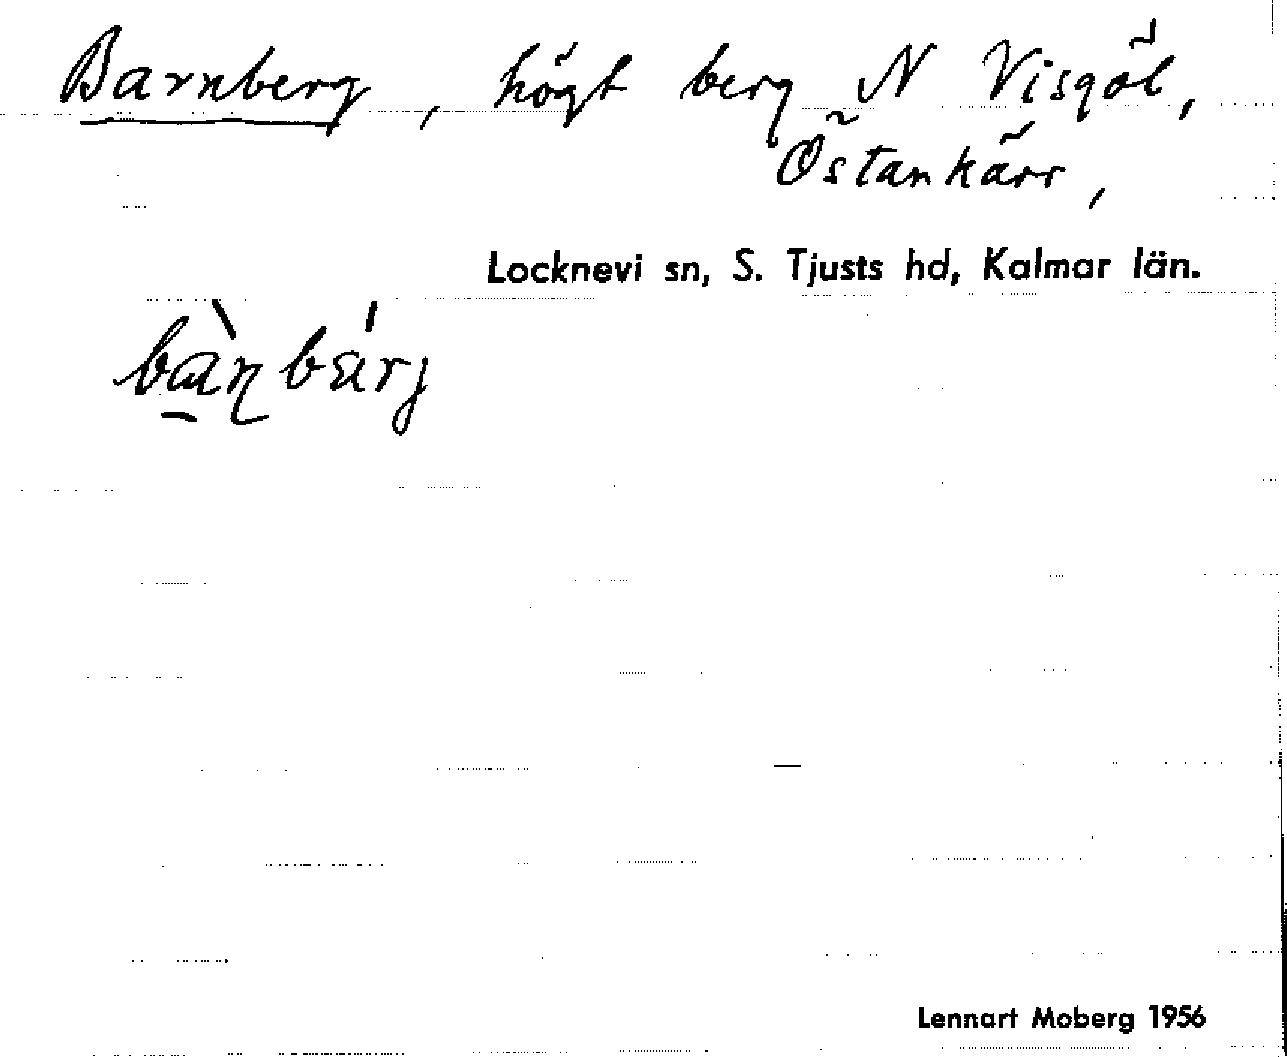 Barnberg, högt berg N Visgöl,
Östankärr,
Locknevi sn, S. Tjusts hd, Kalmar län.
bàɳbárj
Lennart Moberg 1956